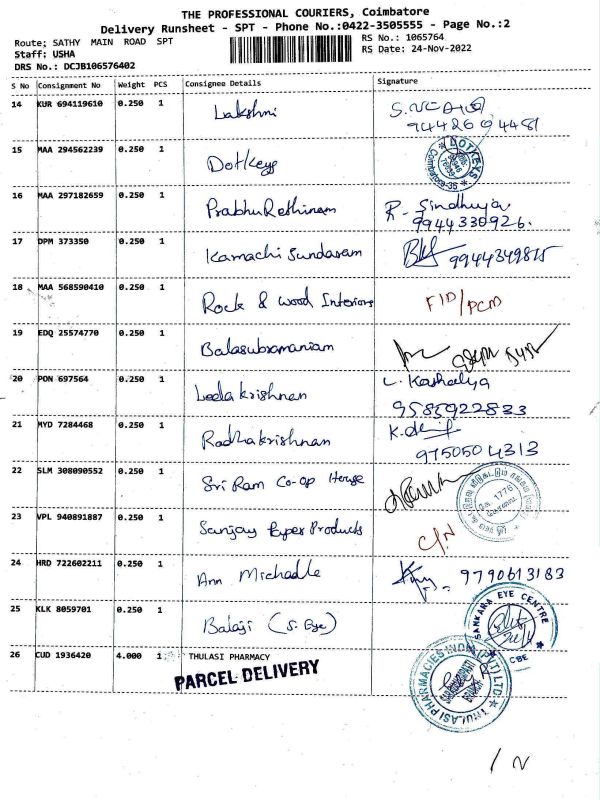 THE PROFESSIONAL COURIERS, Coimbatore
Delivery Runsheet - SPT - Phone No.:0422-3505555 - Page No.:2
Route: SATHY MAIN ROAD SPT
RS No.: 1065764
Staff: USHA
RS Date: 24-Nov-2022
DRS No.: DCJB106576402
S No Consignment No Weight PCS Consignee Details Signature
14 KUR 694119610 0.250 1 Lakshmi
9442694481
15 MAA 294562239 0.250 1 Dotkeys DOTKEYS Coimbatore-35
16 MAA 297182659 0.250 1 PrabhuRethinam R. Sindhuja
9944330926.
17 DPM 373350 0.250 1 Kamachi Sundaram 9944349815
18 MAA 568590410 0.250 1 Rock & Wood Interiors FID/PCD
19 EDQ 25574770 0.250 1 Balasubramaniam
20 PON 697564 0.250 1 Leela krishnan L. Kashalya
9585922833
21 MYD 7284468 0.250 1 Radhakrishnan
9750504313
22 SLM 308090552 0.250 1 Sri Ram Co-op House 1776
23 VPL 940891887 0.250 1 Sanjay Paper Products C/N
24 HRD 722602211 0.250 1 Ann Michadle 9790613183
25 KLK 8059701 0.250 1 Balaji (S. Eye) SANKARA EYE CENTRE CBE
26 CUD 1936420 4.000 1 THULASI PHARMACY THULASI PHARMACIES INDIA (PVT) LTD
PARCEL DELIVERY
1 N